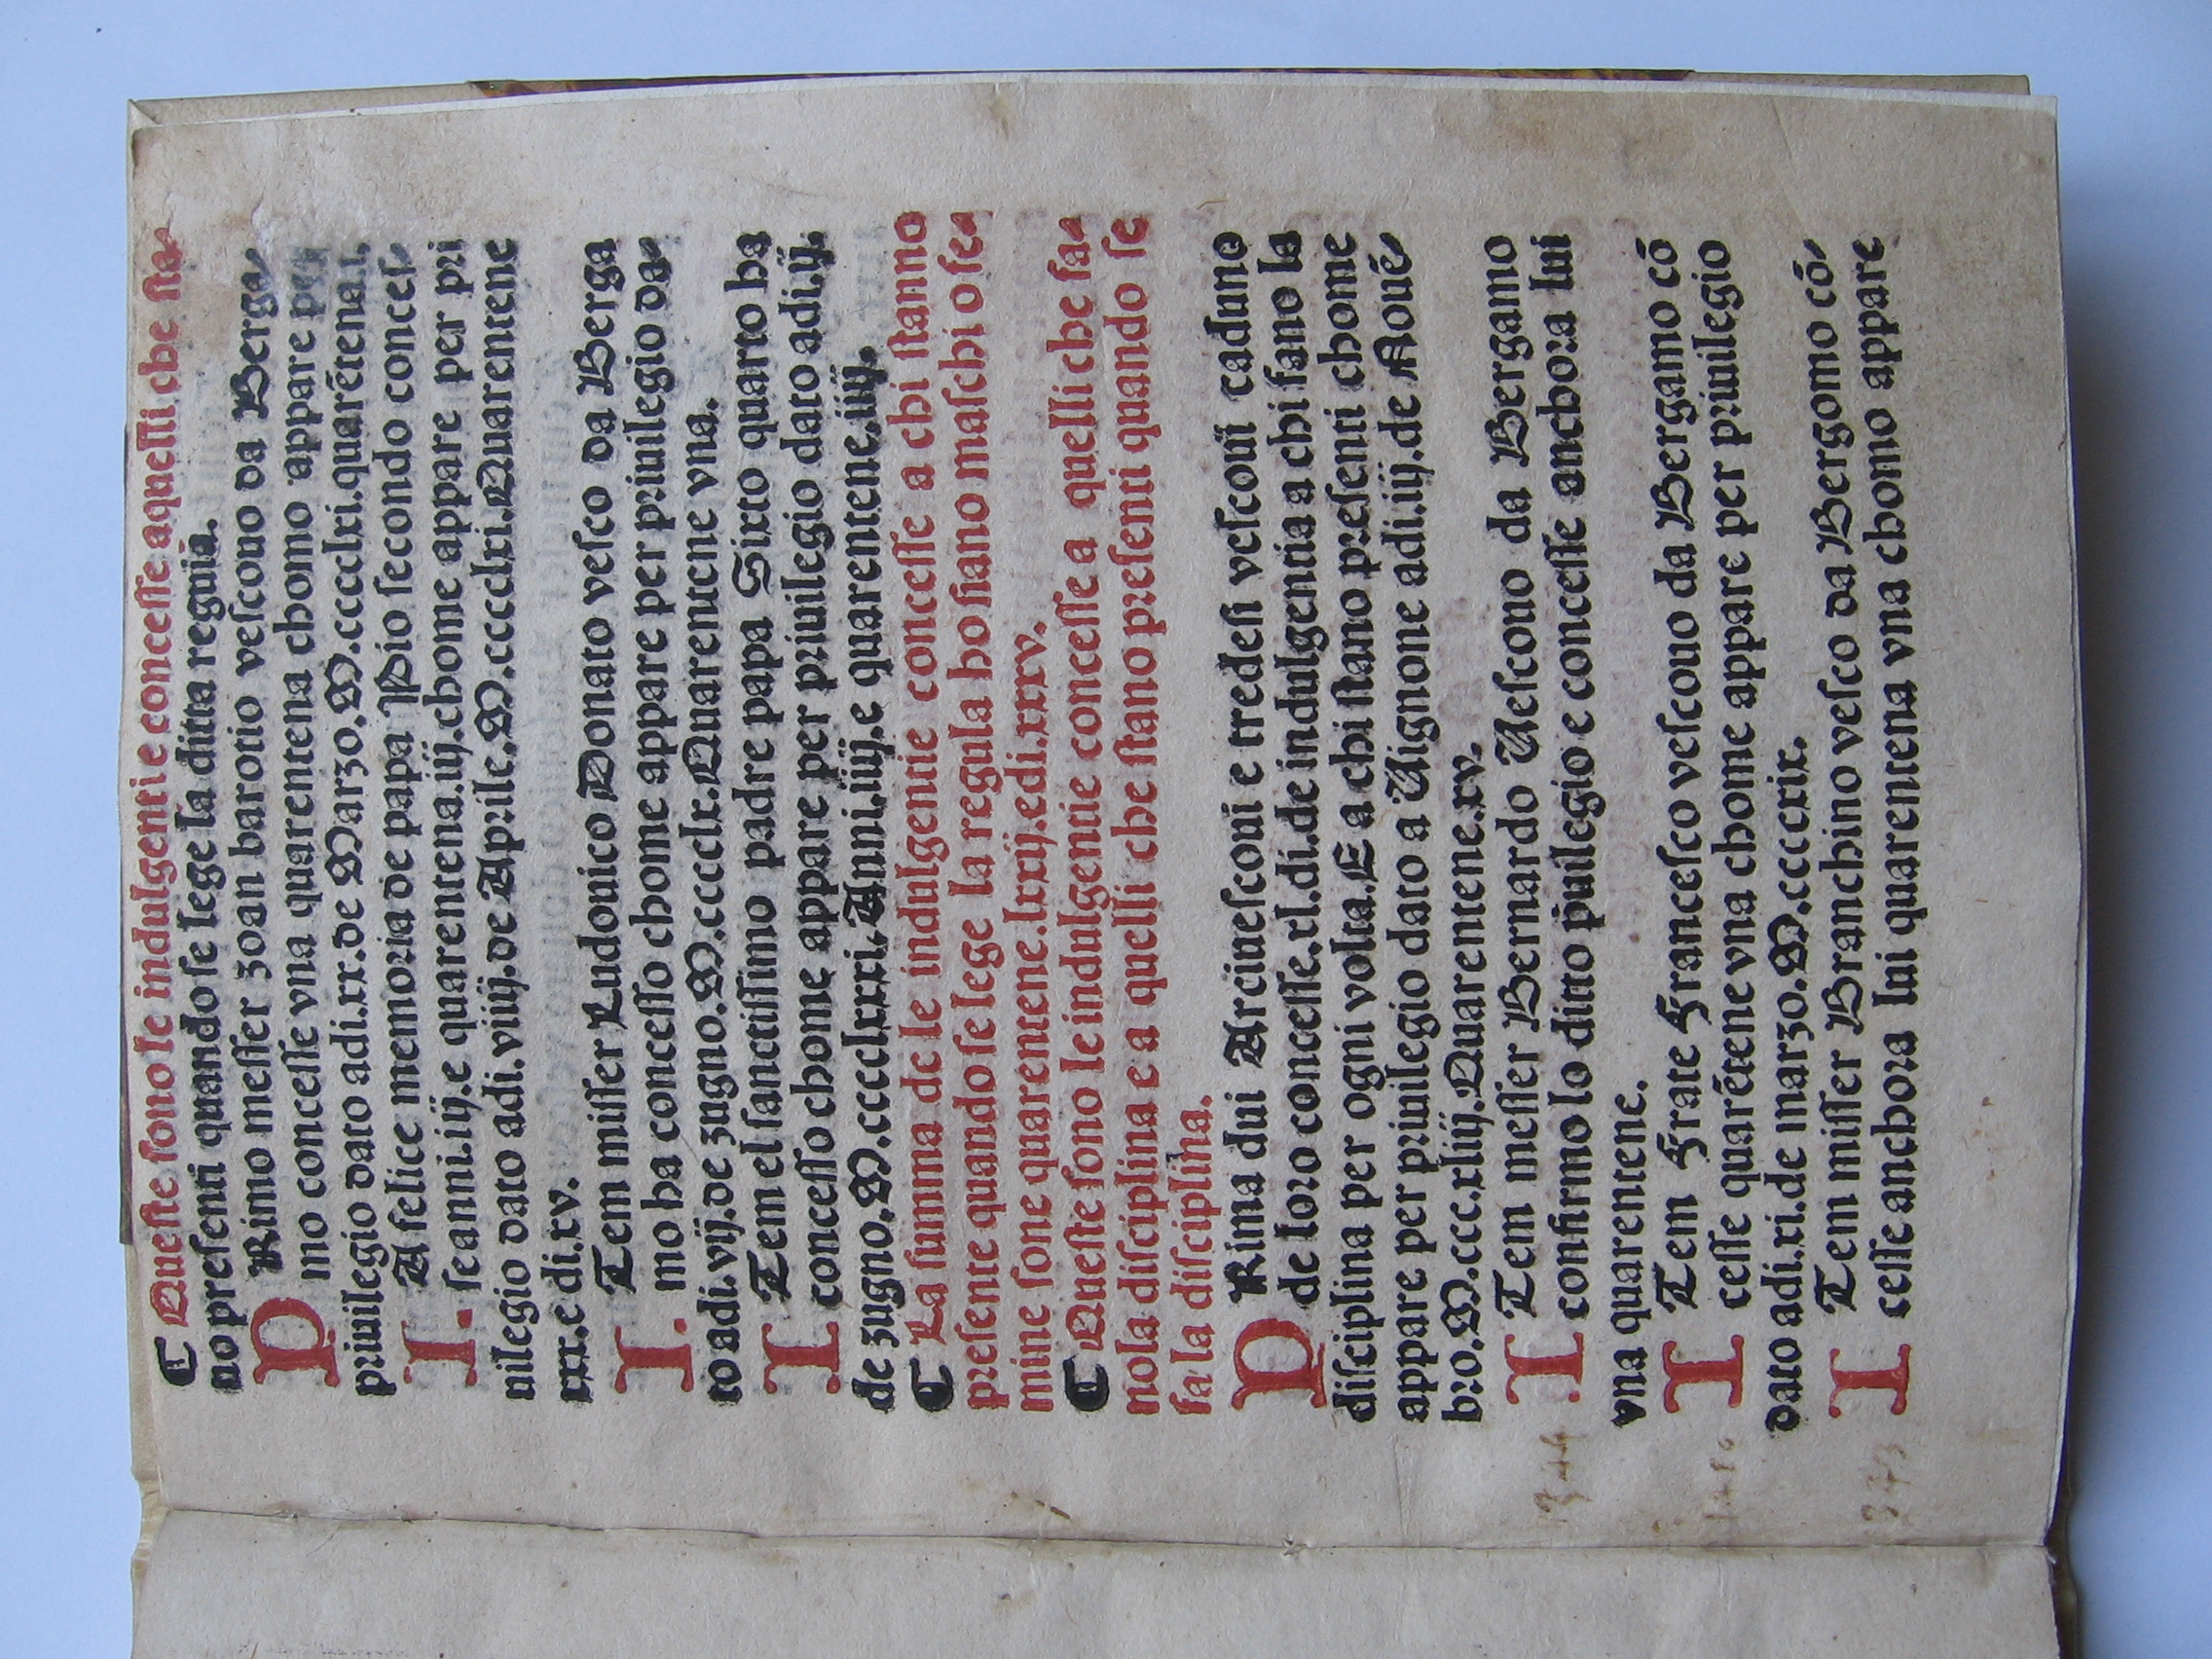 ¶ Queste sono le indulgentie concesse aquelli che sta-
no presenti quando se lege la ditta regula.
PRimo messer zoan barotio vescouo da Berga-
mo concesse vna quarentena chomo appare per
priuilegio dato adi.xx.de Marzo.M.cccclxi.quarētena.i.
IA felice memoria de papa Pio secondo conces-
se anni.iij.e quarentena.iij.chome appare per pri
uilegio dato adi.viiij.de Aprile.M.cccclxi.Quarentene
xxx.e di.xv.
ITem misser Ludouico Donato vesco da Berga
mo ha concesso chome appare per priuilegio da-
to adi.vij.de zugno.M.cccclx.Quarentene vna.
ITem el sanctissimo padre papa Sixto quarto ha
concesso chome appare per priuilegio dato adi.ij.
de zugno.M.cccclxxxi.Anni.iiij.e quarentene.iiij.
¶ La summa de le indulgentie concesse a chi stanno
presente quando se lege la regula ho siano maschi o fe-
mine sone quarentene.lxxij.e di.xxxv.
¶ Queste sono le indulgentie concesse a quelli che fa-
no la disciplina e a quelli che stano presenti quando se
fa la disciplina.
PRima dui Arciuescoui e tredesi vescoui caduno
de loro concesse.xl.di.de indulgentia a chi fano la
disciplina per ogni volta.E a chi stano presenti chome
appare per priuilegio dato a Uignone adi.iij.de Nouē-
bro.M.ccc.xliij.Quarentene.xv.
ITem messer Bernardo Uescouo da Bergamo
confirmo lo ditto p̄uilegio e concesse anchora lui
vna quarentene.
ITem Frate Francesco vescouo da Bergamo cō
cesse quarētene vna chome appare per priuilegio
dato adi.xi.de marzo.M.ccccxix.
ITem misser Branchino vesco da Bergomo cō-
cesse anchora lui quarentena vna chomo appare
1344